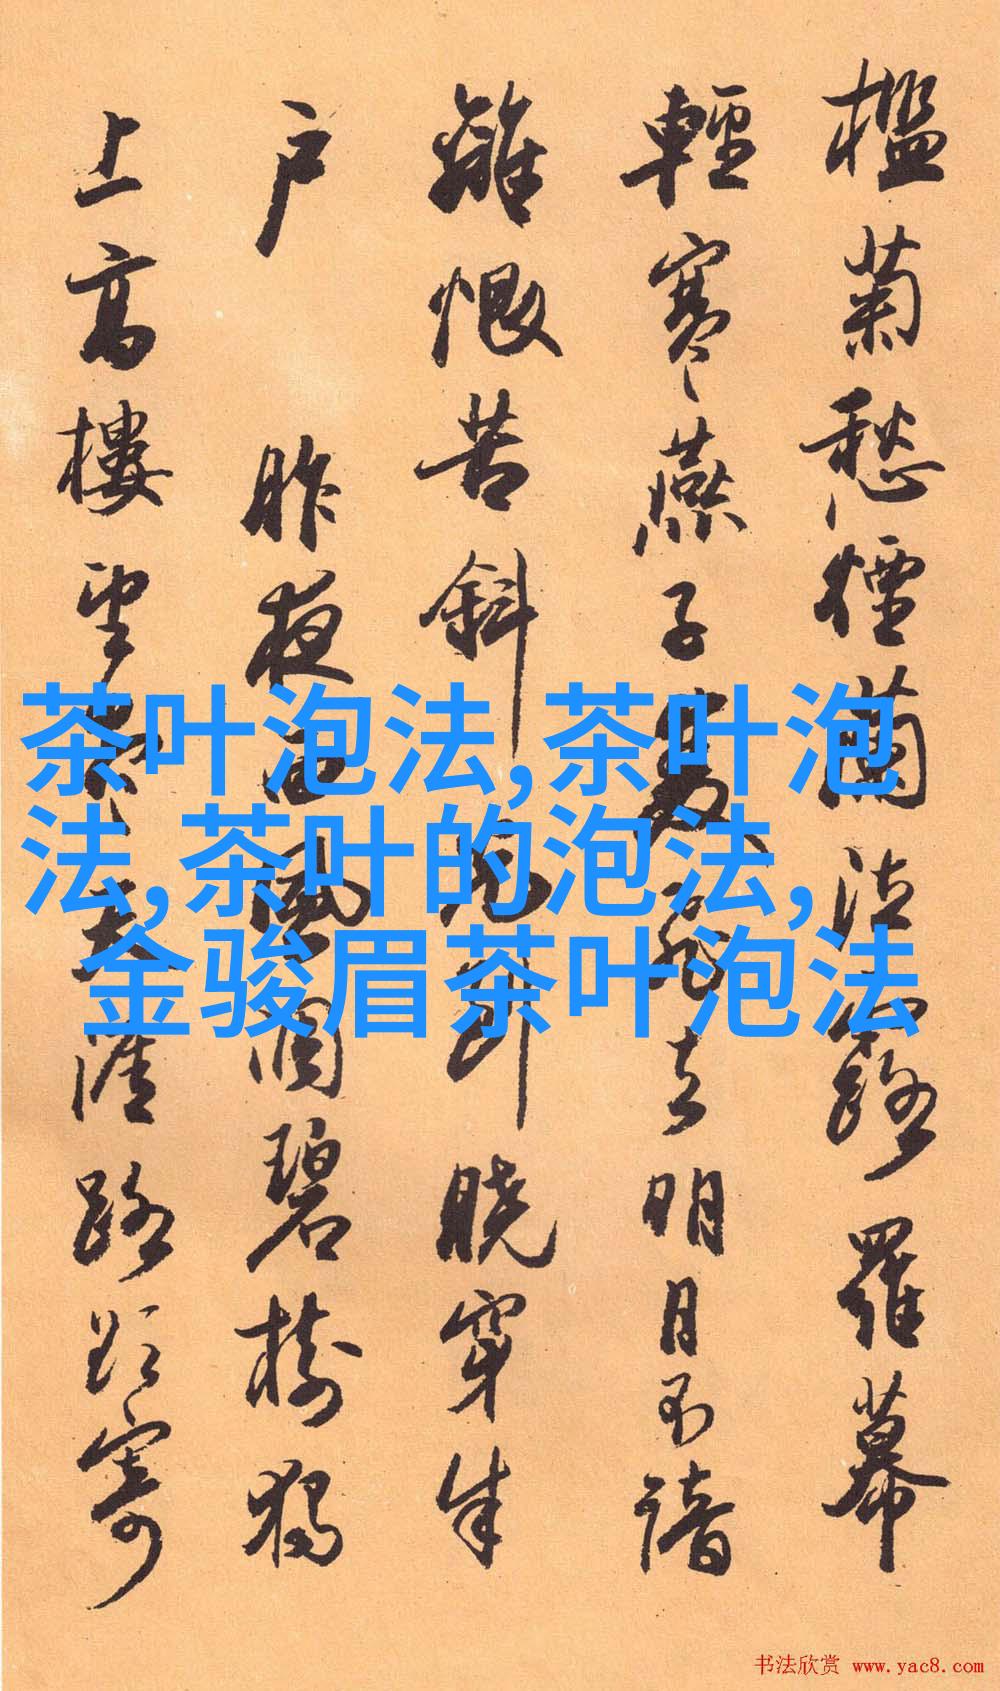 檻菊愁煙蘭泣露羅幕
輕寒燕子雙飛去明月不諳
離恨苦斜光到曉穿朱
户 昨夜西風凋碧樹獨
上高樓望盡天涯路欲寄
茶叶泡法,茶叶泡
法,茶叶的泡法,
金骏眉茶叶泡法
书法欣赏 www.yac8.com